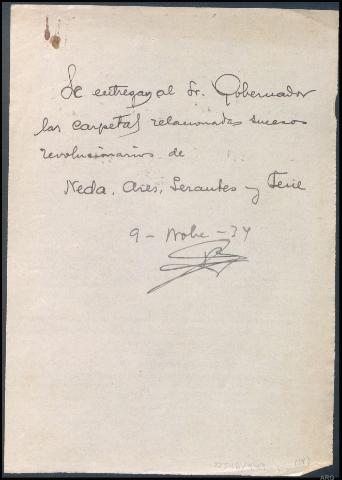 Se entregan al Sr. Gobernador
las carpetas relacionadas sucesos
revolucionarios de
Neda, Ares, Serantes y Fene
9 - Nobe - 34
ARQ